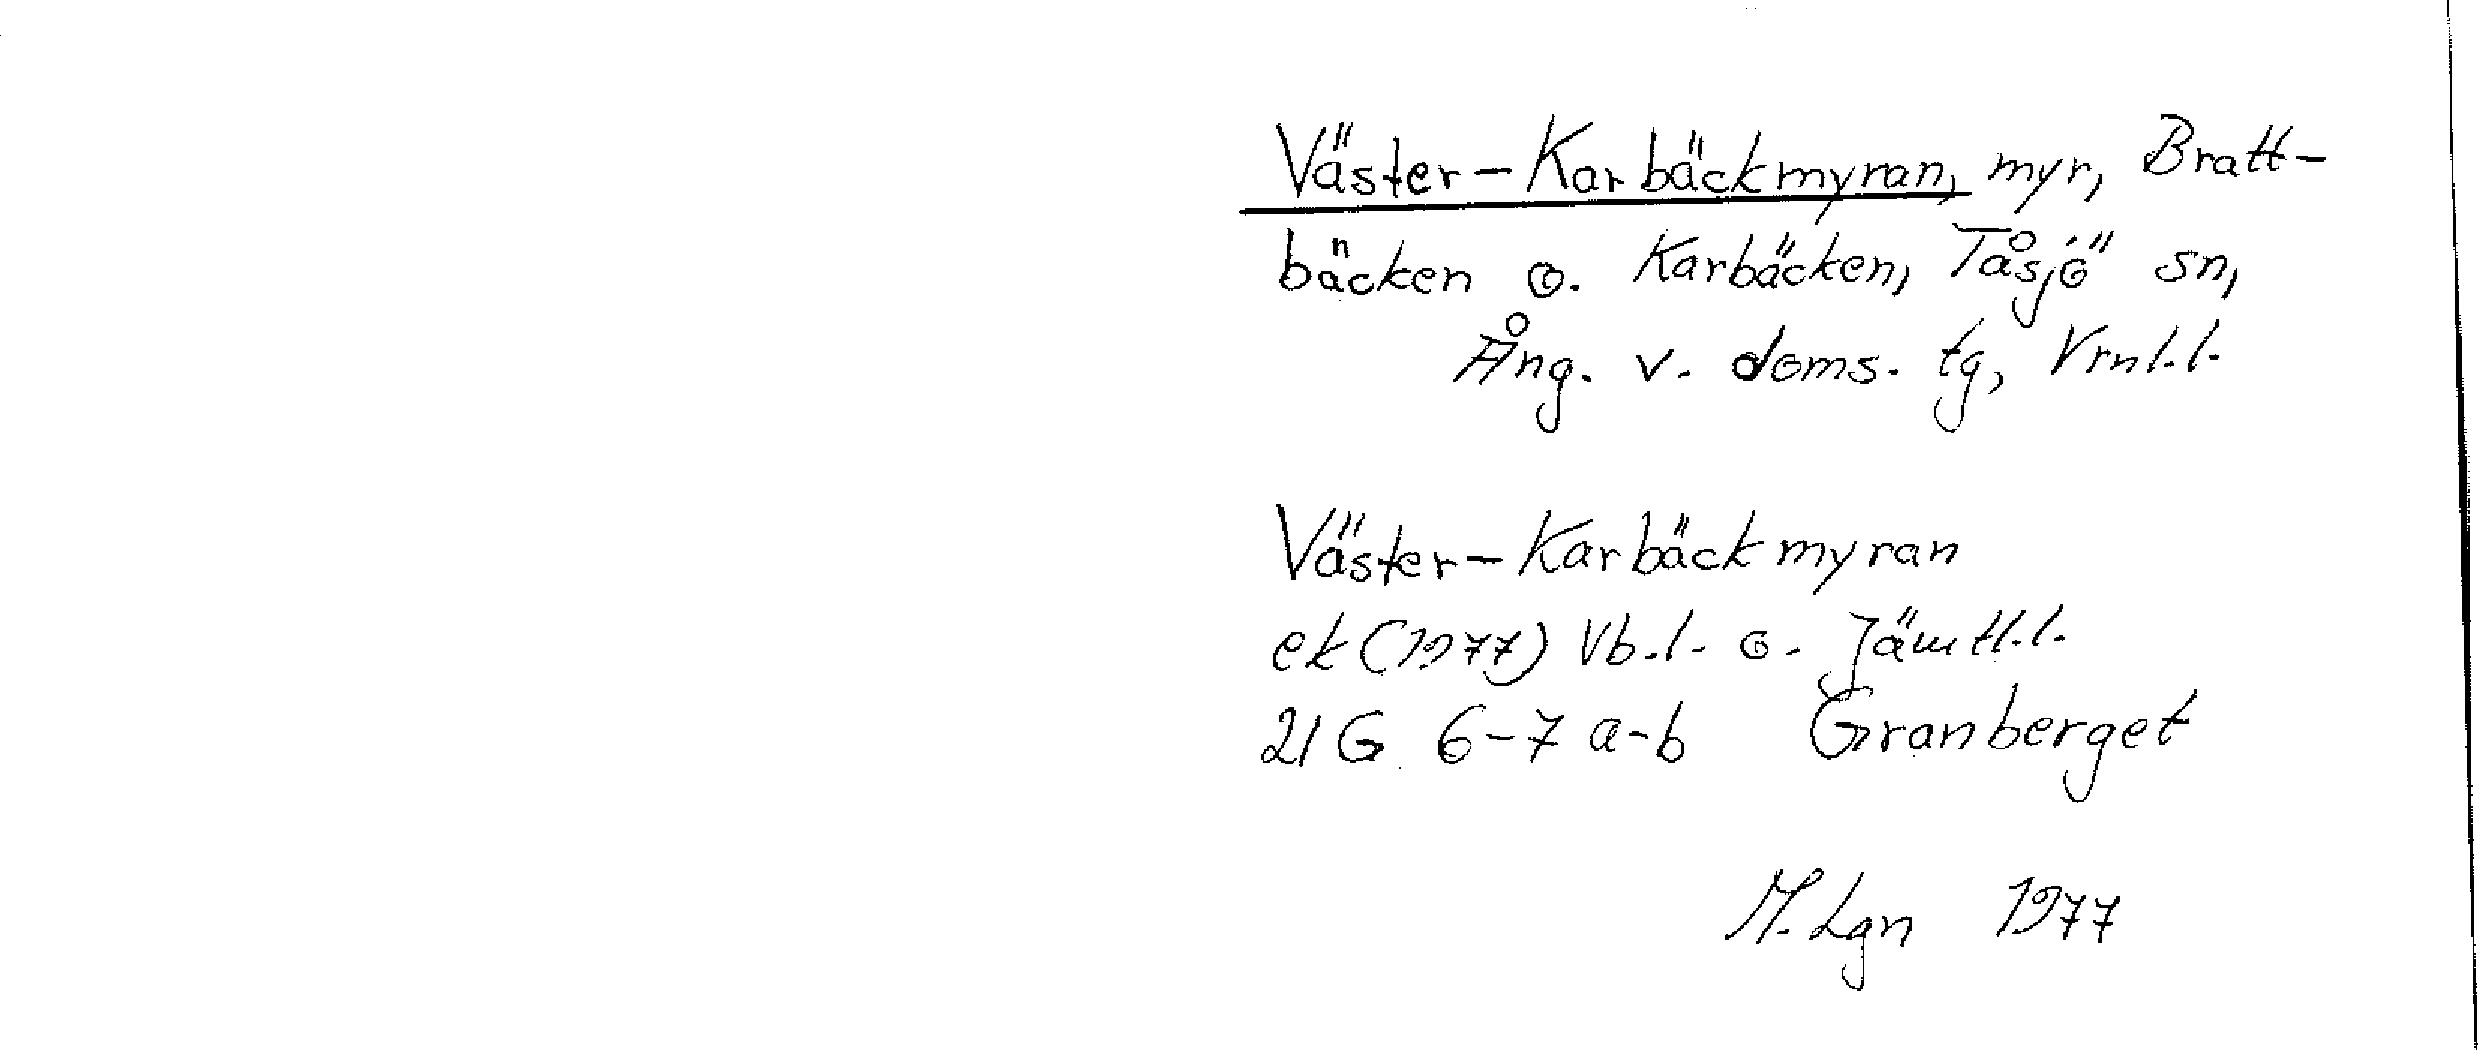 Väster-Karbäckmyran, myr, Bratt-
bäcken o. Karbäcken, Tåsjö sn,
Ång. v. doms. tg, Vrnl.l.
Väster-Karbäckmyran
ek (1977) Vb.l. o. Jämtl.l.
21G 6-7 a-b Granberget
M. Lgn 1977